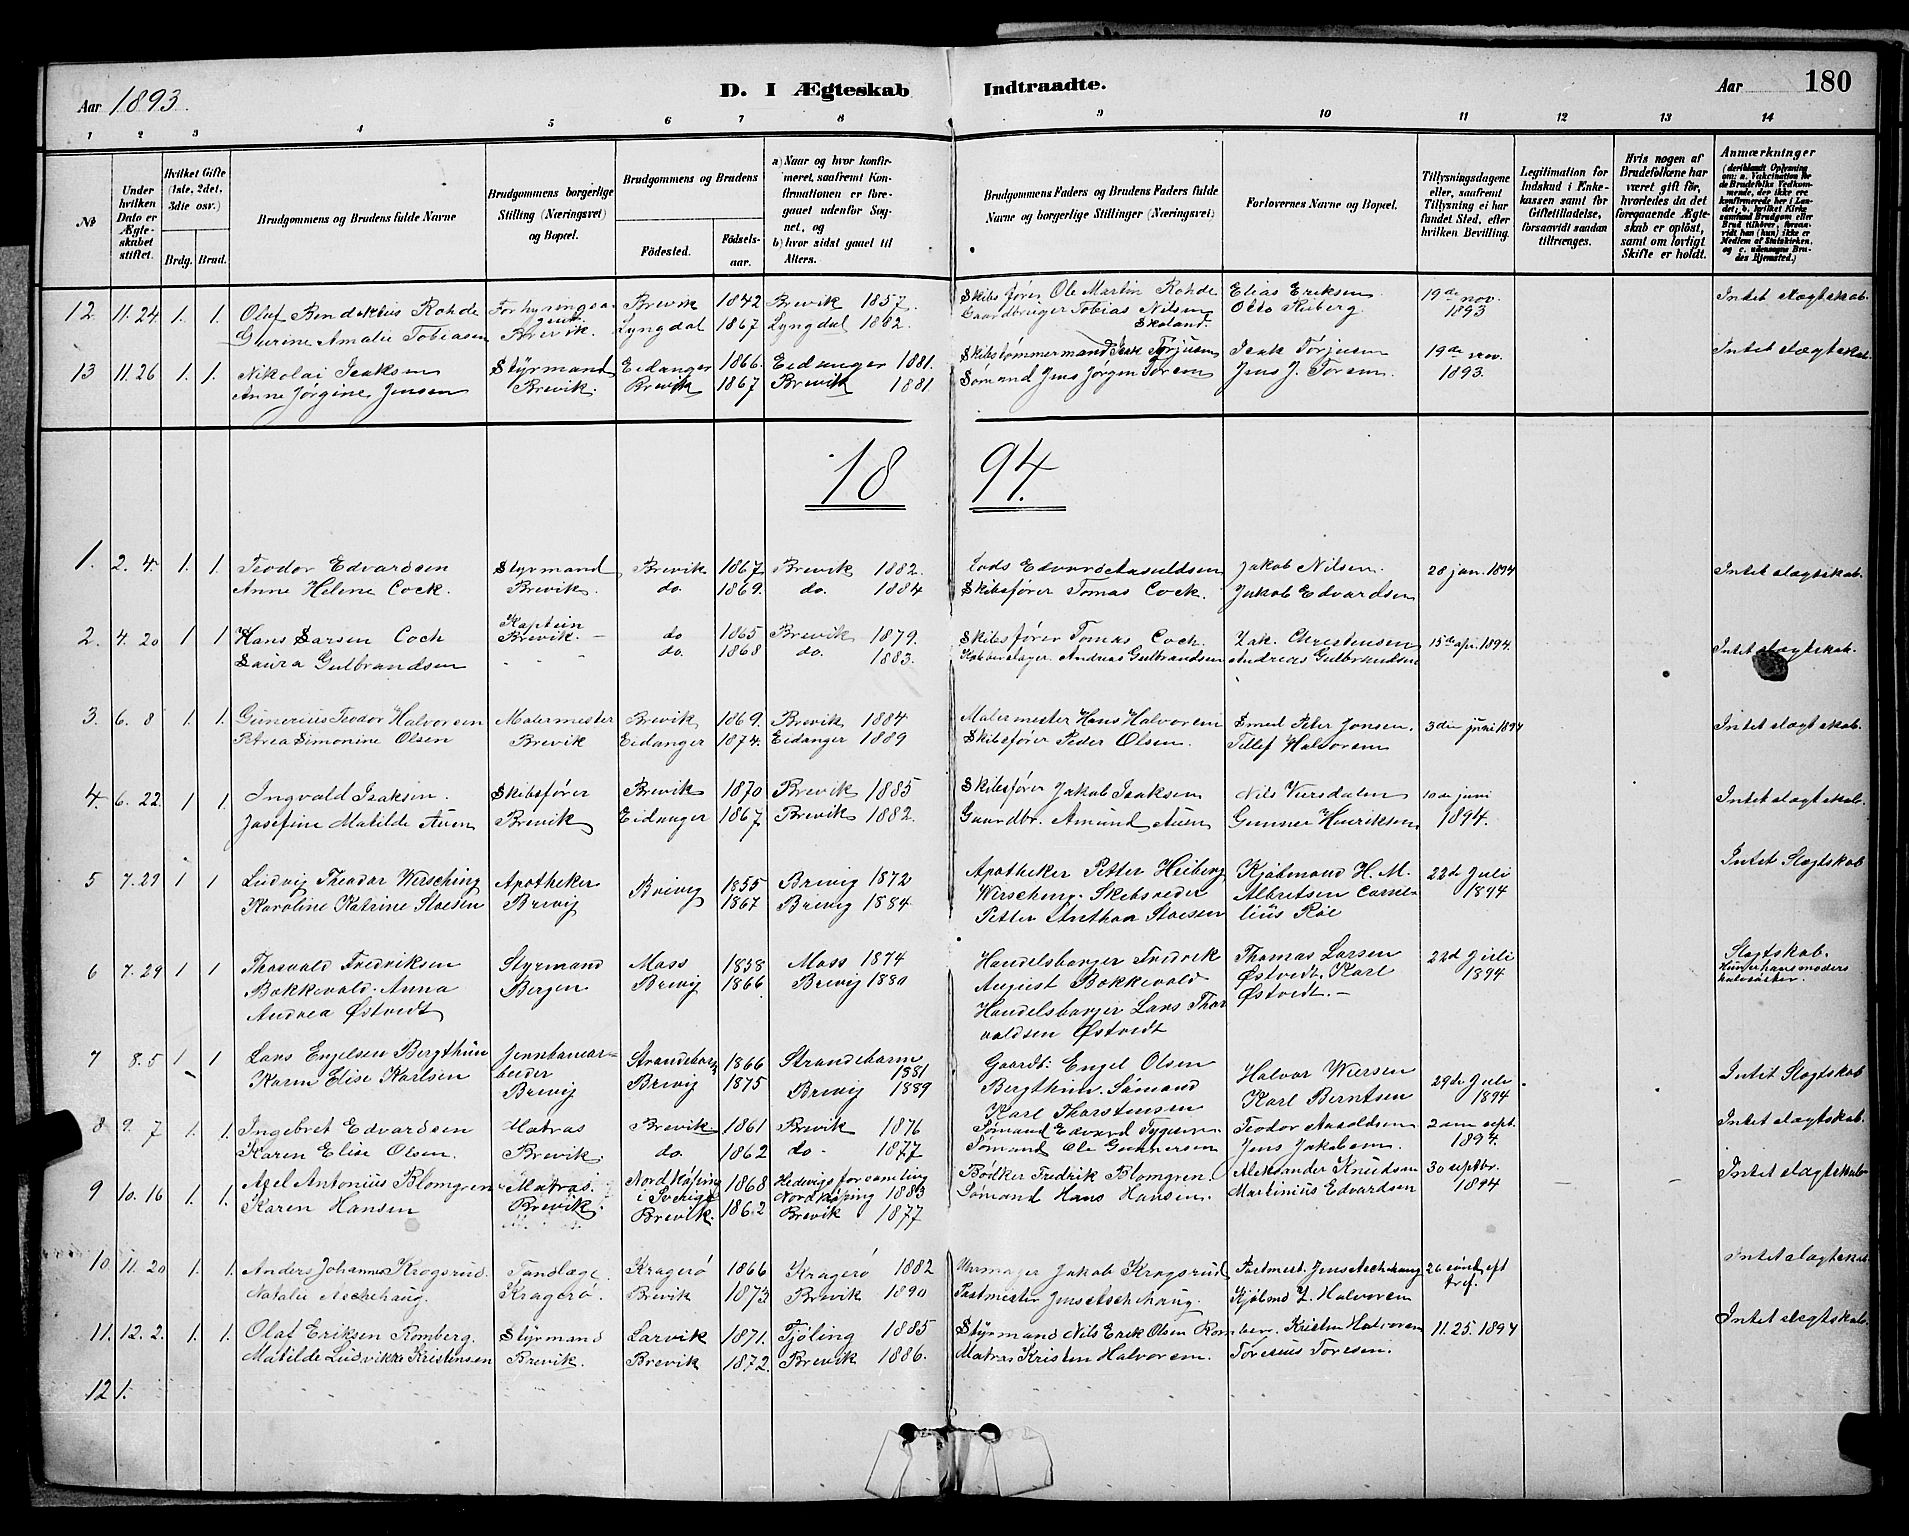 Aar 1893.
D. I Ægteskab Indtraadte.
Aar 180
1 2 3 4 5 6 7 8 9 10 11 12 13 14
№
Under hvilken Dato er Ægteskabet stiftet.
Hvilket Gifte (1ste, 2det, 3die osv.)
Brdg. Brud.
Brudgommens og Brudens fulde Navne
Brudgommens borgerlige Stilling (Næringsvei) og Bopæl.
Brudgommens og Brudens
Födested.
Födselsaar.
a) Naar og hvor konfirmeret, saafremt Konfirmationen er foregaaet udenfor Sognet, og
b) hvor sidst gaaet til Alters.
Brudgommens Faders og Brudens Faders fulde Navne og borgerlige Stillinger (Næringsvei)
Forlovernes Navne og Bopæl.
Tillysningsdagene eller, saafremt Tillysning ei har fundet Sted, efter hvilken Bevilling.
Legitimation for Indskud i Enkekassen samt for Giftetilladelse, forsaavidt saadan tiltrænges.
Hvis nogen af Brudefolkene har været gift før, hvorledes da det foregaaende Ægteskab er opløst, samt om lovligt Skifte er holdt.
Anmærkninger
(deriblandt Oplysning om: a. Vakcination for de Brudefolks Vedkommende, der ikke ere konfirmerede her i Landet; b. hvilket Kirkesamfund Brudgom eller Brud tilhører, forsaavidt han (hun) ikke er Medlem af Statskirken, og c. udensogns Brudes Hjemsted.)
12. 11. 24. 1. 1. Oluf Bendektius Rohde Brevik 1842 Brevik 1857. Skibsfører Ole Martin Rohde Elias Eriksen. 19de nov. Intet slægtskab.
Gurine Amalie Tobiasen Brevik. Lyngdal 1867 Lyngdal 1882. Gaardbruger Tobias Nilsen Skoland. Otto Riberg. 1893
13 11. 26 1. 1. Nikolai Isaksen Styrmand Eidanger 1866. Eidanger 1881. Skibstømmermand Isak Torjusen Isak Torjusen 19de nov. Intet slægtskab.
Anne Jørgine Jensen Brevik. Brevik 1867 Brevik 1881 Sømand Jens Jörgen Toresen Jens J. Toresen 1893.
18 94.
1. 2. 4. 1. 1. Teodor Edvardsen Styrmand Brevik 1867 Brevik 1882. Lods Edvard Aasuldsen Jakob Nilsen. 28 jan. 1894 Intet slægtskab.
Anne Helene Cock. Brevik. do. 1869. do. 1884 Skibsfører Tomas Cock. Jakob Edvardsen
2. 4. 20 1 1 Hans Larsen Coch Kaptein Brevik. do 1865 Brevik 1879. Skibsfører Tomas Coch. Zak. Christensen 15de apr. 1894. Intet slægtskab.
Laura Gulbrandsen do. 1868 do. 1883. Kobberslager Andreas Gulbrandsen Andreas Gulbrandsen
3. 6. 8 1. 1. Gunerius Teodor Halvorsen Malermester Brevik 1869. Brevik 1884 Malermester Hans Halvorsen Smed Peter Jonsen. 3die juni 1894 Intet slægtskab.
Petrea Simonine Olsen Brevik Eidanger 1874. Eidanger 1889 Skibsfører Peder Olsen. Tellef Halvorsen
4. 6. 22. 1 1. Ingvald Isaksen. Skibsfører Brevik 1870 Brevik 1885 Skibsfører Jakob Isaksen Nils Versdalen 10de juni Intet slægtskab.
Josefine Matilde Auen Brevik Eidanger 1867 Brevik 1882. Gaardbr. Amund Auen Gunner Henriksen 1894.
5 7. 29 1 1 Ludvig Theodor Wersching Apotheker Brevig 1855 Brevig 1872 Apotheker Petter Heiberg Kjøbmand H. M. 22d Juli Intet Slægtskab
Karoline Katrine Stoesen Brevig 1867 Brevig 1884 Wersching. Skibsreder Albretsen Cornelius Röe 1894
Petter Anthon Stoesen
6 7. 29 1 1 Thorvald Fredriksen Styrmand Moss 1858 Moss 1874 Handelsborger Fredrik Thomas Larsen 22d Juli Slægtskab.
Bokkevold. Anna Bergen Brevig 1866. Brevig 1880 August Bokkevold Østvedt. Karl 1894 Hun er hans moders halvsøster.
Andrea Østvedt Handelsborger Lars Thorvaldsen Østvedt Østvedt.
7 8. 5 1 1 Lars Engelsen Bergthun Jernbanearbeider Strandebarm 1866 Strandebarm 1881 Gaardb. Engel Olsen Halvor Wersen 29de Juli Intet Slægtskab
Karen Elise Karlsen Brevig Brevig 1875 Brevig 1889 Bergthun. Sømand Karl Thorstensen Karl Berntsen 1894
8 9. 7 1. 1. Ingebret Edvardsen Matros Brevik 1861 Brevik 1876 Sømand Edvard Tygesen Teodor Aasoldsen 2den sept. Intet slægtskab.
Karen Elise Olsen. Brevik. do. 1862 do. 1877 Sømand Ole Gunnersen Jens Jakobsen. 1894.
9 10. 16 1. 1. Axel Antonius Blomgren Matros. Nordkøping i Sverige 1868 Hedvigs forsamling Nordkøping 1883 Bødker Fredrik Blomgren. Aleksander Knudsen 30 septbr. Intet slægtskab
Karen Hansen Brevik. Brevik. 1862 Brevik 1877 Sømand Hans Hansen. Martinius Edvardsen 1894
10. 11. 20 1. 1. Anders Johannes Krogsrud. Tandlæge. Kragerø 1866 Kragerø 1882 Urmager Jakob Krogsrud Postmest. Jens Aschehoug Intet slægtskab.
Natalie Aschehoug. Kragerø. Brevik 1873 Brevik 1890 Postmester Jens Aschehoug. Kjøbmd L. Halvorsen
11. 12. 2. 1. 1. Olaf Eriksen Romberg. Styrmand Larvik 1871. Tjøling 1885 Styrmand Nils Erik Olsen Romberg. Kristen Halvorsen 11. 25. 1894 Intet slægtskab.
Matilde Ludvikke Kristensen Brevik. Brevik 1872. Brevik 1886. Matros Kristen Halvorsen. Toresius Toresen.
12 1.